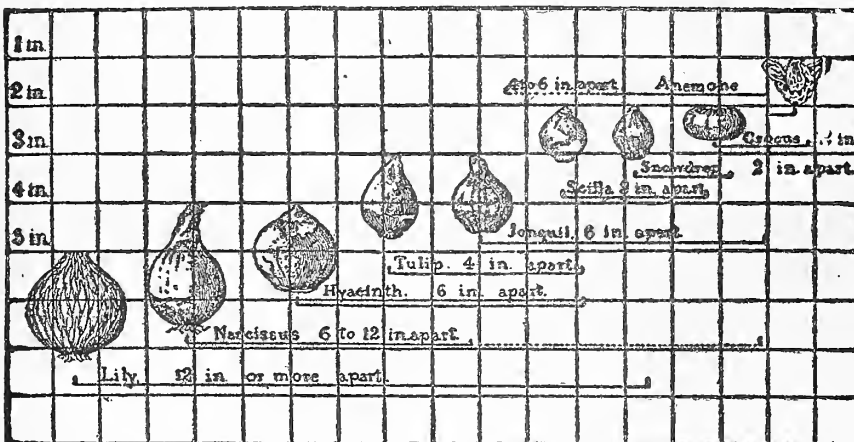 1 in.
2 in.
4 to 6 in. apart Anemone
3 in.
Crocus
Snowdrop 2 in. apart.
4 in.
Scilla 2 in. apart
5 in.
Jonquil, 6 in. apart
Tulip. 4 in. apart.
Hyacinth. 6 in. apart.
Narcissus 6 to 12 in. apart.
Lily. 12 in. or more apart.